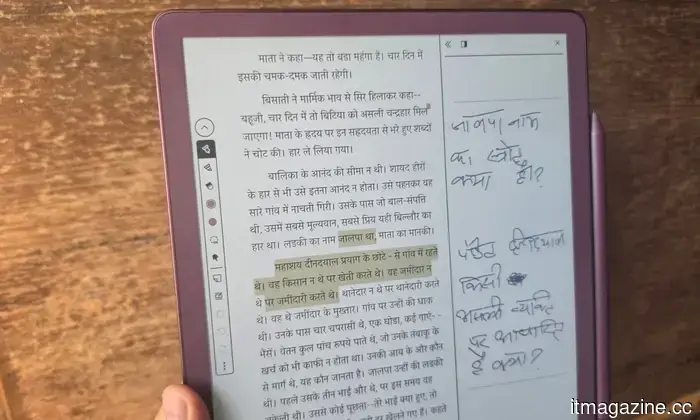 माता ने कहा—यह तो बडा महंगा है। चार दिन में
इसकी चमक-दमक जाती रहेगी।
बिसाती ने मार्मिक भाव से सिर हिलाकर कहा--
बहूजी, चार दिन में तो बिटिया को असली चन्द्रहार मिल
जाएगा। माता के ह्रदय पर इन सह्रदयता से भरे हुए शब्दों
ने चोट की। हार ले लिया गया।
बालिका के आनंद की सीमा न थी। शायद हीरों
के हार से भी उसे इतना आनंद न होता। उसे पहनकर वह
सारे गांव में नाचती गिरी। उसके पास जो बाल-संपत्ति
थी, उसमें सबसे मूल्यवान, सबसे प्रिय यही बिल्लौर का
हार था। लडकी का नाम जालपा था, माता का मानकी।
महाशय दीनदयाल प्रयाग के छोटे - से गांव में रहते
थे। वह किसान न थे पर खेती करते थे। वह जमींदार न
थे पर जमींदारी करते थे। थानेदार न थे पर थानेदारी करते
थे। वह थे जमींदार के मुख्तार। गांव पर उन्हीं की धाक
थी। उनके पास चार चपरासी थे, एक घोडा, कई गाएं- -
भैंसें। वेतन कुल पांच रूपये पाते थे, जो उनके तंबाकू के
खर्च को भी काफी न होता था। उनकी आय के और कौन
से मार्ग थे, यह कौन जानता है। जालपा उन्हीं की लडकी
थी। पहले उसके तीन भाई और थे, पर इस समय वह
अकेली थी। उससे कोई पूछता--तेरे भाई क्या हुए, तो
खेलने गए हैं। कहते
नाम
का स्त्रोत
क्या है?
किसी
असली व्यक्ति
पर आधारित
है क्या?
itmagazine.cc